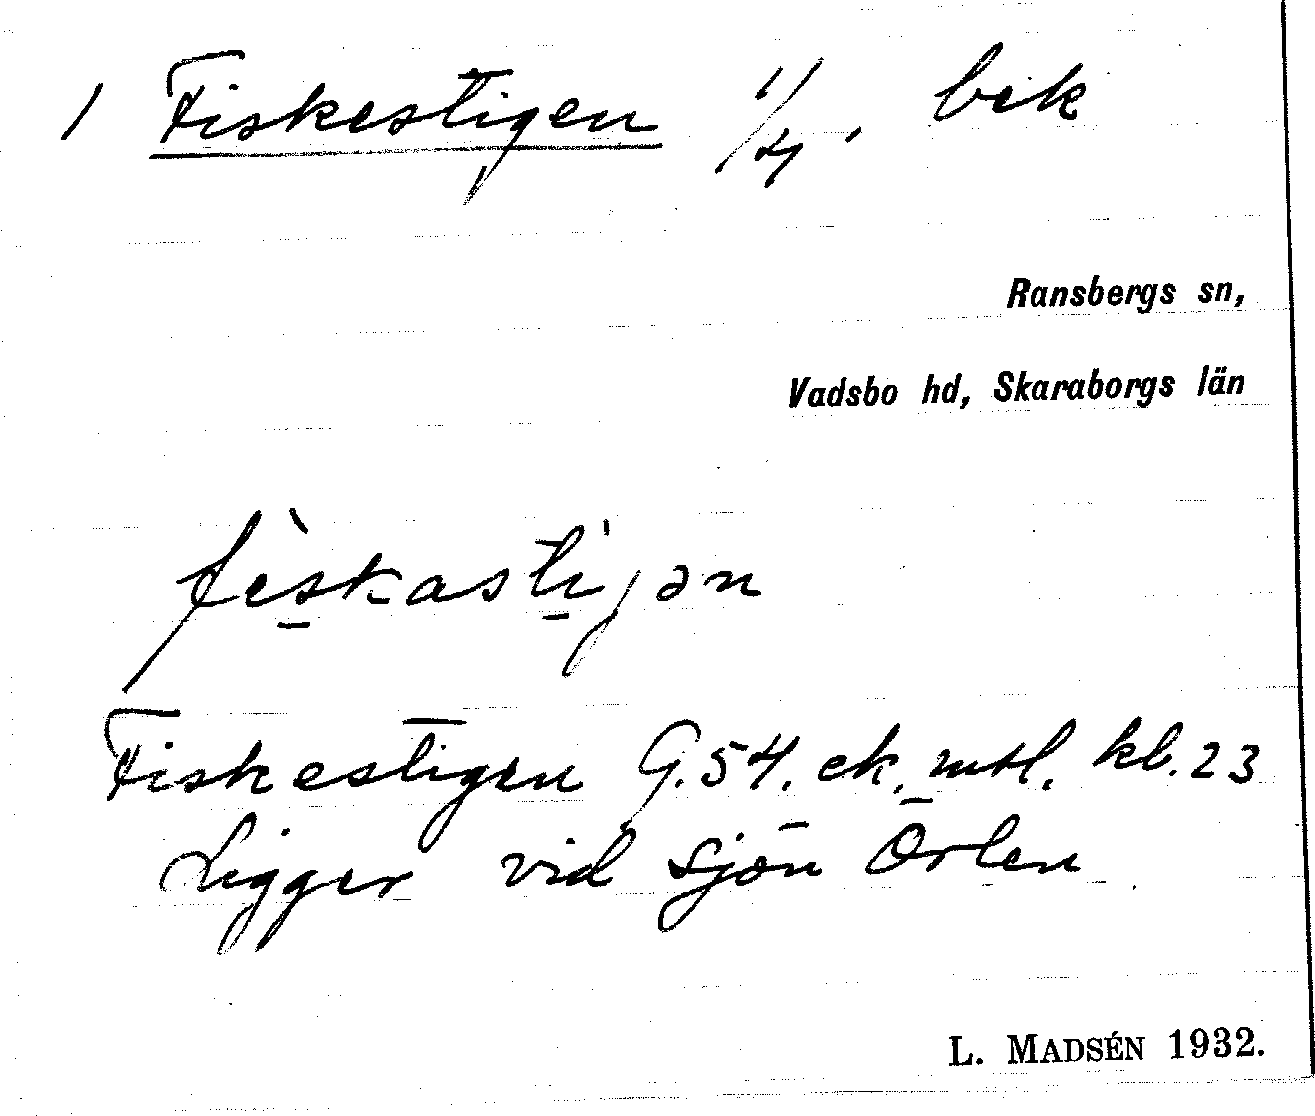 1 Fiskestigen 1/4. bek
Ransbergs sn,
Vadsbo hd, Skaraborgs län
fìskastı̍jən
Fiskestigen G.54. ek. mtl. kb. 23
Ligger vid sjön Örlen
L. MADSÉN 1932.